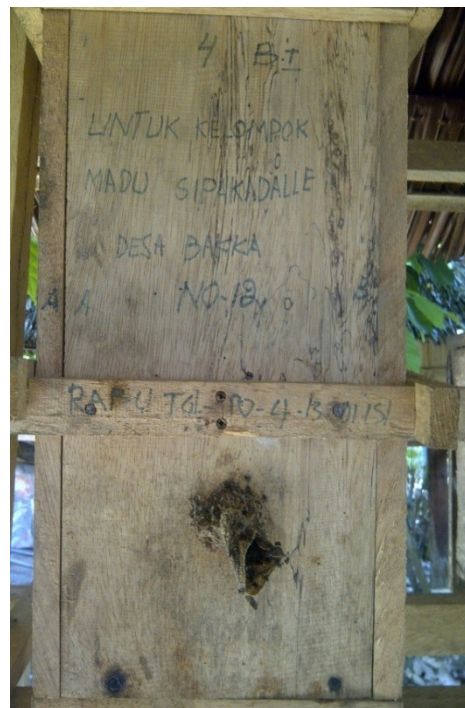 4 B.T
UNTUK KELOMPOK
MADU SIPUKADALLE
DESA BAKKA
A A NO-12
RABU TGL-10-4-13 DI ISI